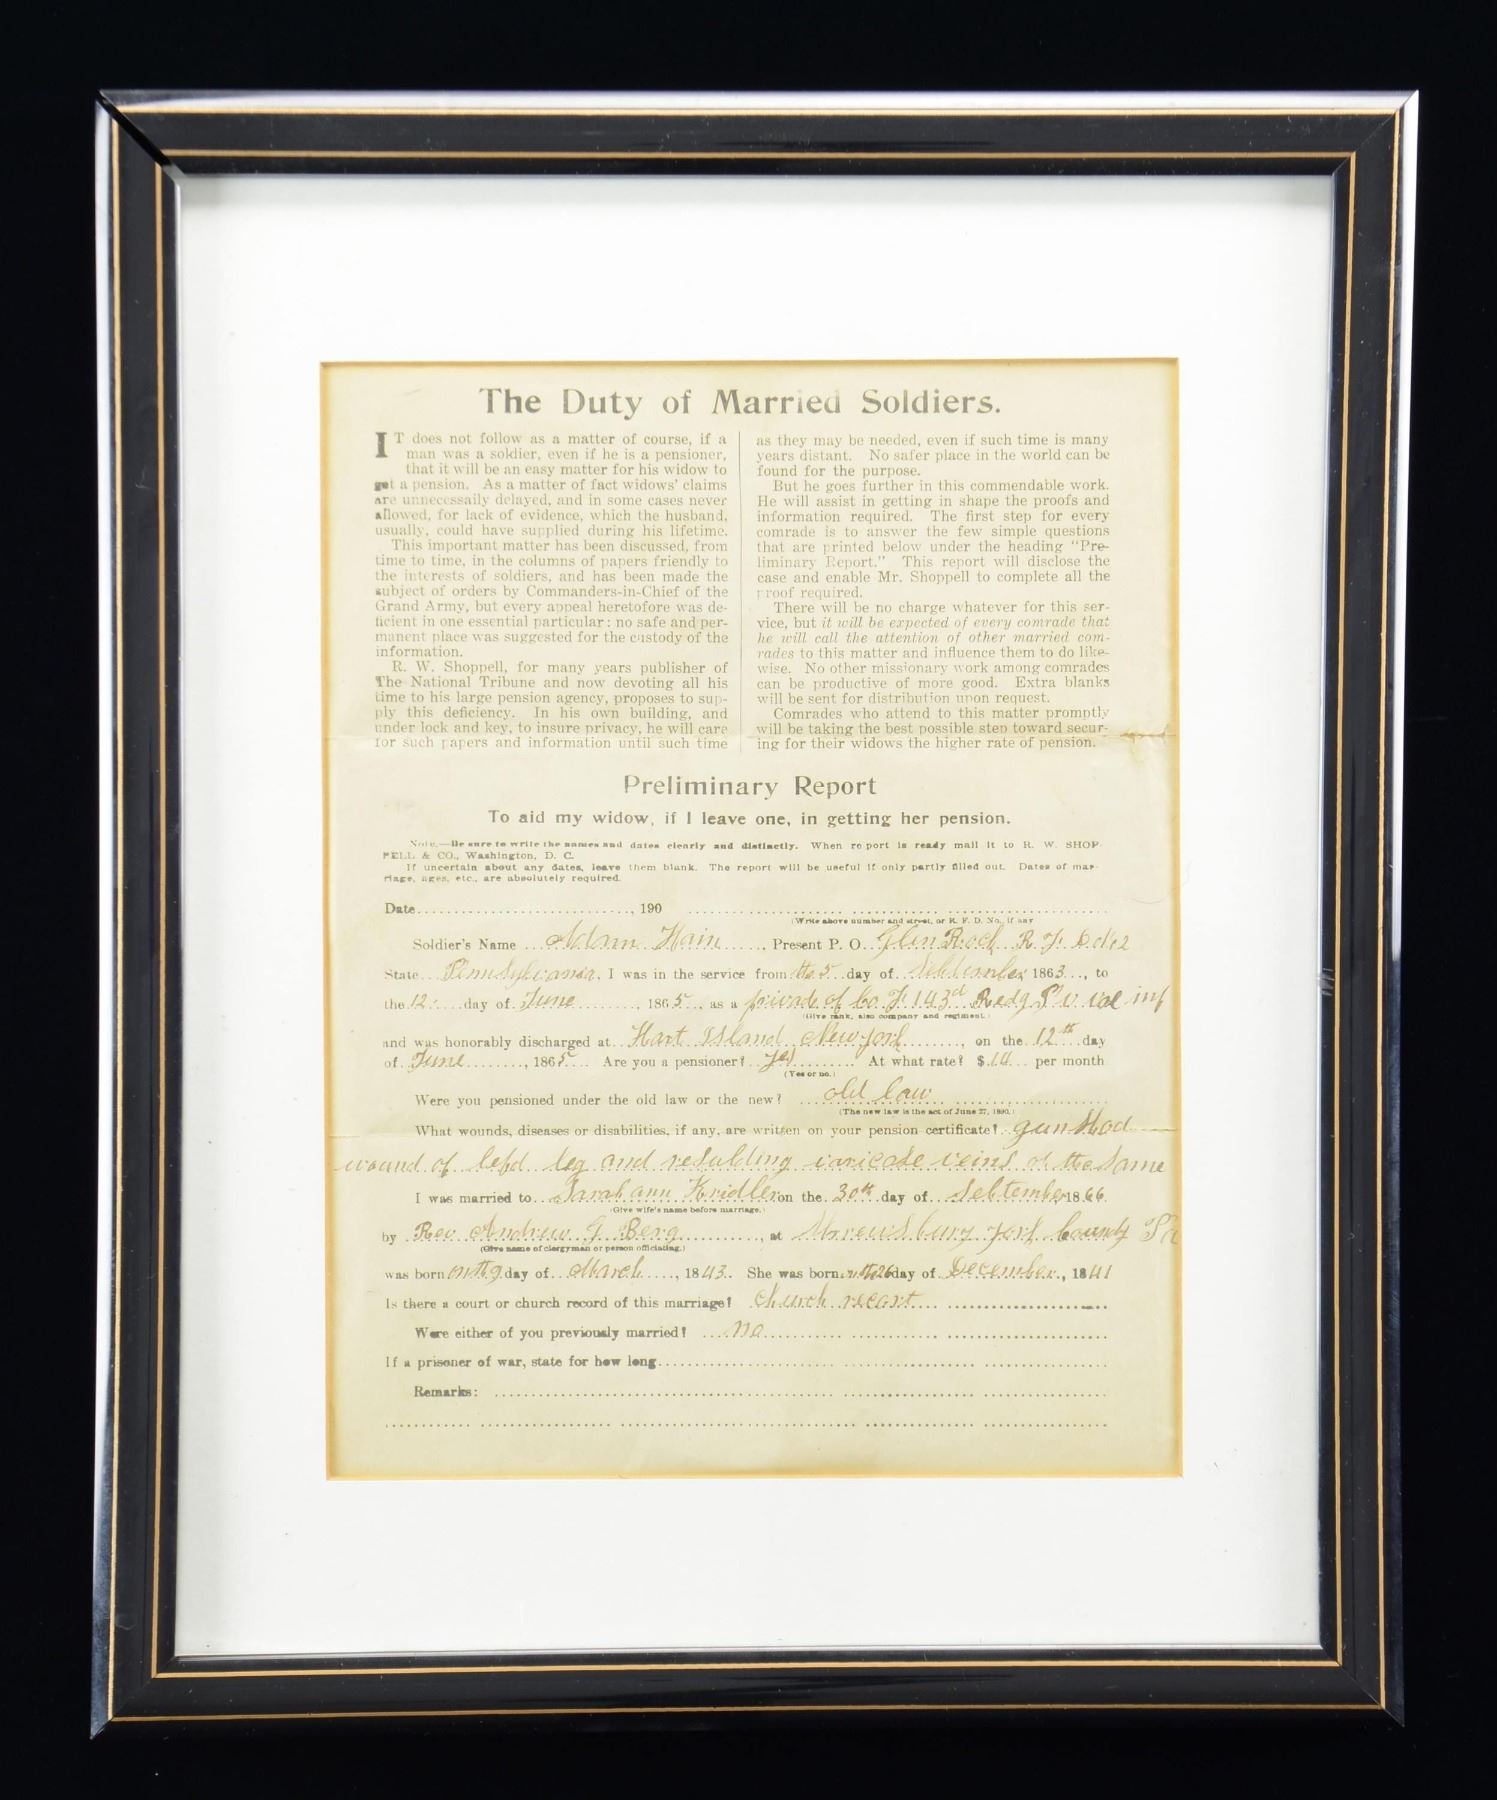 The Duty of Married Soldiers.
IT does not follow as a matter of course, if a
man was a soldier, even if he is a pensioner,
that it will be an easy matter for his widow to
get a pension. As a matter of fact widows' claims
are unnecessaily delayed, and in some cases never
allowed, for lack of evidence, which the husband,
usually, could have supplied during his lifetime.
This important matter has been discussed, from
time to time, in the columns of papers friendly to
the interests of soldiers, and has been made the
subject of orders by Commanders-in-Chief of the
Grand Army, but every appeal heretofore was de-
ficient in one essential particular: no safe and per-
manent place was suggested for the custody of the
information.
R. W. Shoppell, for many years publisher of
The National Tribune and now devoting all his
time to his large pension agency, proposes to sup-
ply this deficiency. In his own building, and
under lock and key, to insure privacy, he will care
for such papers and information until such time
as they may be needed, even if such time is many
years distant. No safer place in the world can be
found for the purpose.
But he goes further in this commendable work.
He will assist in getting in shape the proofs and
information required. The first step for every
comrade is to answer the few simple questions
that are printed below under the heading "Pre-
liminary Report." This report will disclose the
case and enable Mr. Shoppell to complete all the
proof required.
There will be no charge whatever for this ser-
vice, but it will be expected of every comrade that
he will call the attention of other married com-
rades to this matter and influence them to do like-
wise. No other missionary work among comrades
can be productive of more good. Extra blanks
will be sent for distribution upon request.
Comrades who attend to this matter promptly
will be taking the best possible step toward secur-
ing for their widows the higher rate of pension.
Preliminary Report
To aid my widow, if I leave one, in getting her pension.
Note.—Be sure to write the names and dates clearly and distinctly. When report is ready mail it to R. W. SHOP-
PELL & CO., Washington, D. C.
If uncertain about any dates, leave them blank. The report will be useful if only partly filled out. Dates of mar-
riage, ages, etc., are absolutely required.
Date, 190
(Write above number and street, or R. F. D. No., if any
Soldier's Name Adam Hain Present P. O. Glen Rock R. F.
State Pennsylvania, I was in the service from the 5 day of September 1863, to
the 12 day of June, 1865 as a private of Co. F 143d Redg P v inf
(Give rank, also company and regiment.)
and was honorably discharged at Hart Island New york, on the 12th day
of June, 1865 Are you a pensioner? yes At what rate? $ 14 per month
(Yes or no.)
Were you pensioned under the old law or the new? old law
(The new law is the act of June 27, 1890.)
What wounds, diseases or disabilities, if any, are written on your pension certificate? gun Shod
wound of lefd leg and resulding varicose veins of the Same
I was married to Sarah ann Kridler on the 30th day of September 1866
(Give wife's name before marriage.)
by Rev Andrew G Berg, at Shrewsbury york County Pa
(Give name of clergyman or person officiating.)
was born on the 9 day of March, 1843 She was born on the 26 day of December, 1841
Is there a court or church record of this marriage? church recort
Were either of you previously married? no
If a prisoner of war, state for how long
Remarks: